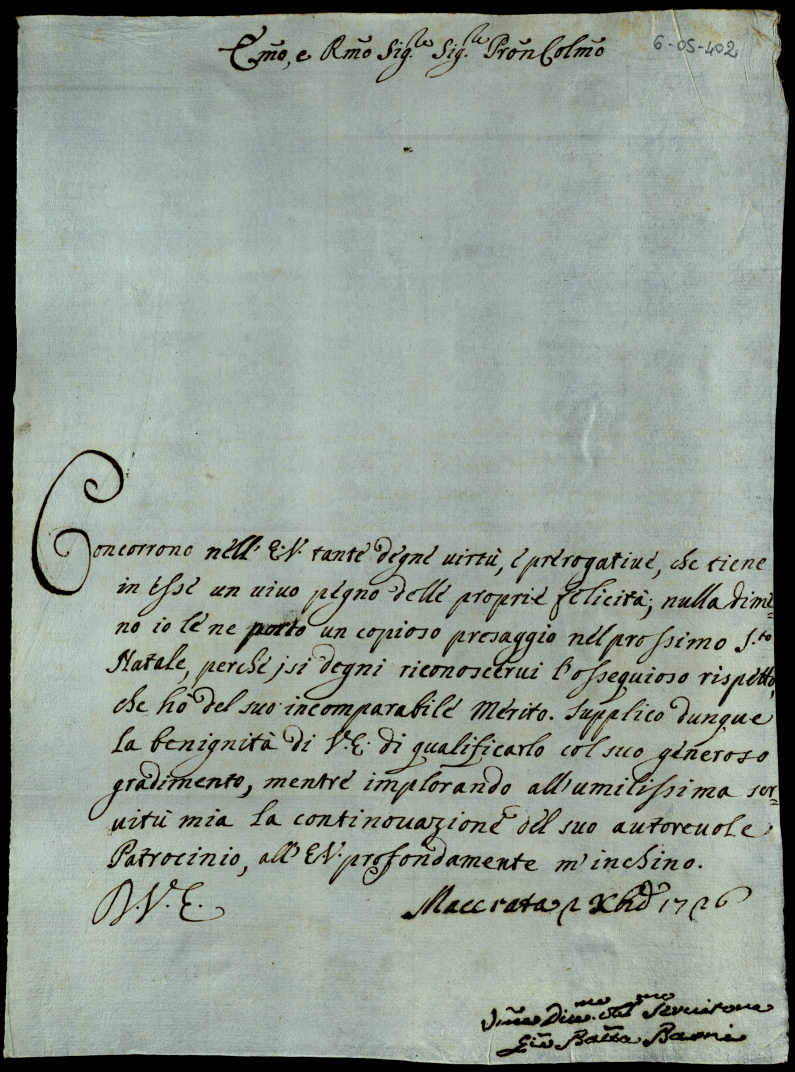 Emo, e Rmo Sig.re Sig.re Pron Colmo
6-05-402
Concorrono nell' E.V. tante degne virtù, e prerogative, che tiene
in esse un vivo pegno delle proprie felicità; nulla dime=
no io le ne porto un copioso presaggio nel prossimo S.to
Natale, perche si degni riconoscervi l'ossequioso rispetto,
che hò del suo incomparabile Merito. Supplico dunque
la benignità di V.E. di qualificarlo col suo generoso
gradimento, mentre implorando all'umilissima ser=
vitù mia la continovazione del suo autorevole
Patrocinio, all' E.V. profondamente m'inchino.
D.V.E.
Macerata 2 Xbre 1726
Servitore
Gio Batta Barni